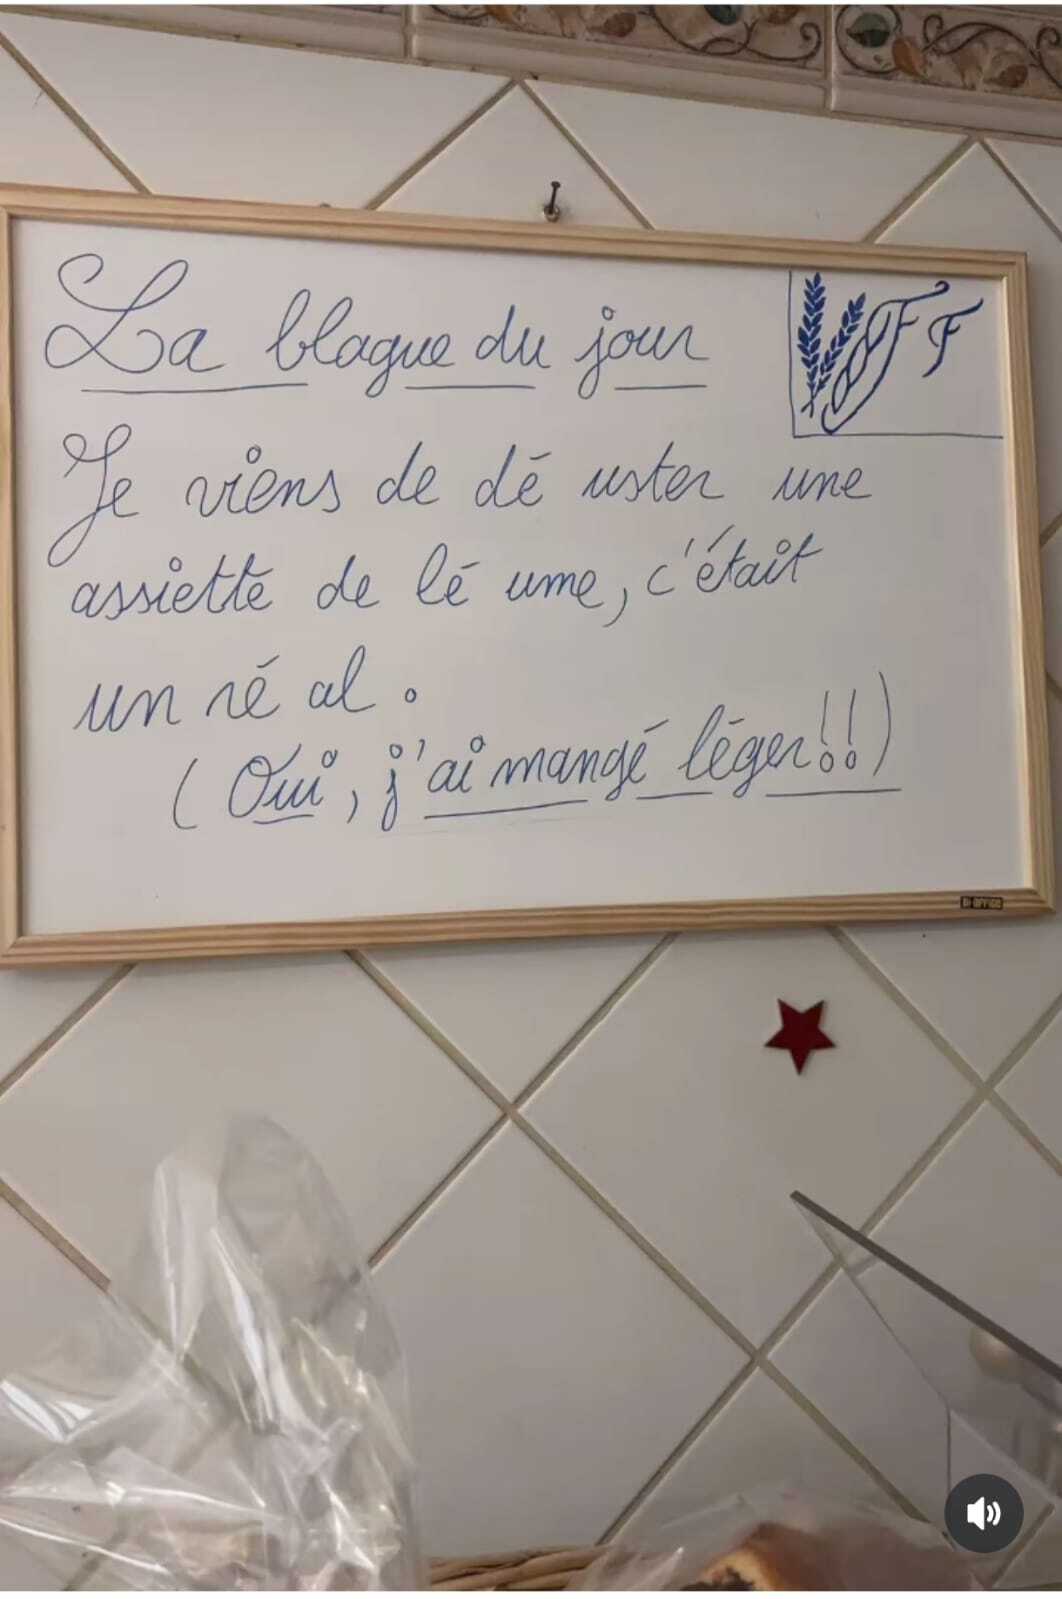 La blague du jour
FF
Je viens de dé uster une
assiette de lé ume, c'était
un ré al.
(Oui, j'ai mangé léger!!)
BI-OFFICE